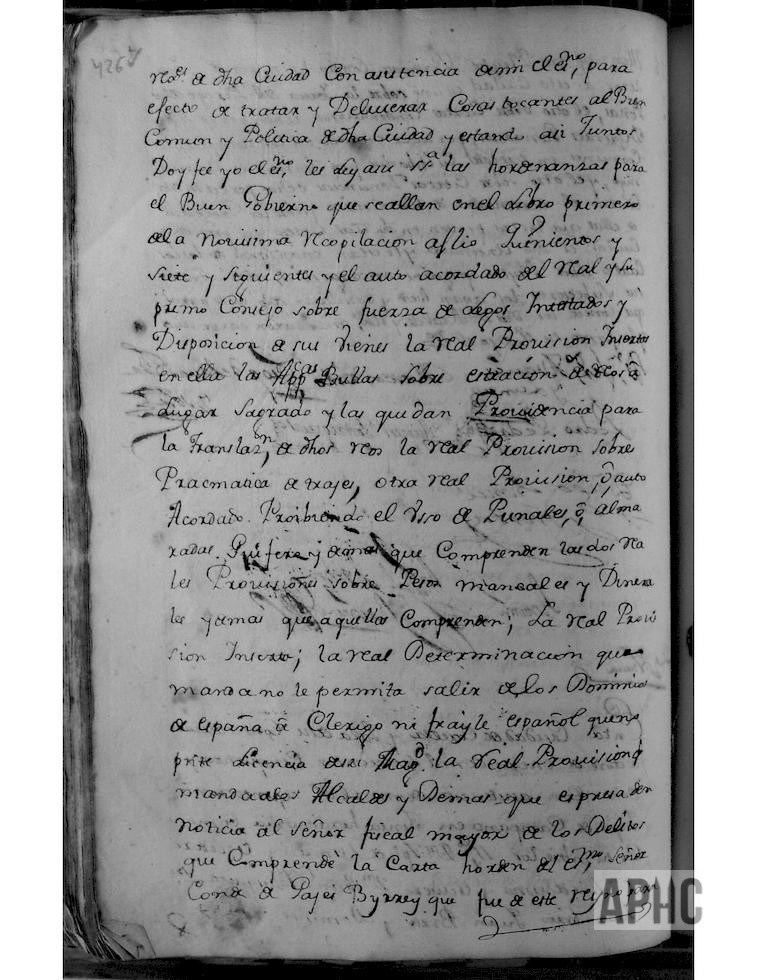 426
de dha Ciudad Con asistencia de mi el esno, para
efecto de tratar y Deliverar Cosas tocantes al Buen
Comun y Politica de dha Ciudad y estando asi Juntos
Doy fee yo el esno, les ley a sus ssa las hordenanzas para
el Buen Gobierno que se allan en el Libro primero
de la Novisima Recopilacion a folio Quinientos y
siete y siguientes y el auto acordado del Real y su
premo Consejo sobre fuerza de Legos Intestados y
Disposicion de sus vienes la Real Provision Insertas
en ella las Appcas Bullas sobre estracion de Reos a
Lugar Sagrado y las que dan Providencia para
la Translazn, de dhos Reos la Real Provision sobre
Pracmatica de trajes, otra Real Provision, o auto
Acordado Proibiendo el Vsso de Punales, o alma
radas y demas que Comprenden las dos Rea
les Provisiones sobre Pesos mansales y Dinera
les y emas que aquellas Comprenden; La Real Provi
sion Inserta; la real Determinacion que
manda no le permita salir de los Dominios
de españa a Clerigo ni frayle español quen
Licencia de su Magd. la Real Provision q
manda a los Alcaldes y Demas que espresa den
noticia al señor fiscal mayor de los Delitos
que Comprende la Carta horden del esmo, señor
Conde de Pajes Byrrey que fue de este reyno para
APHC